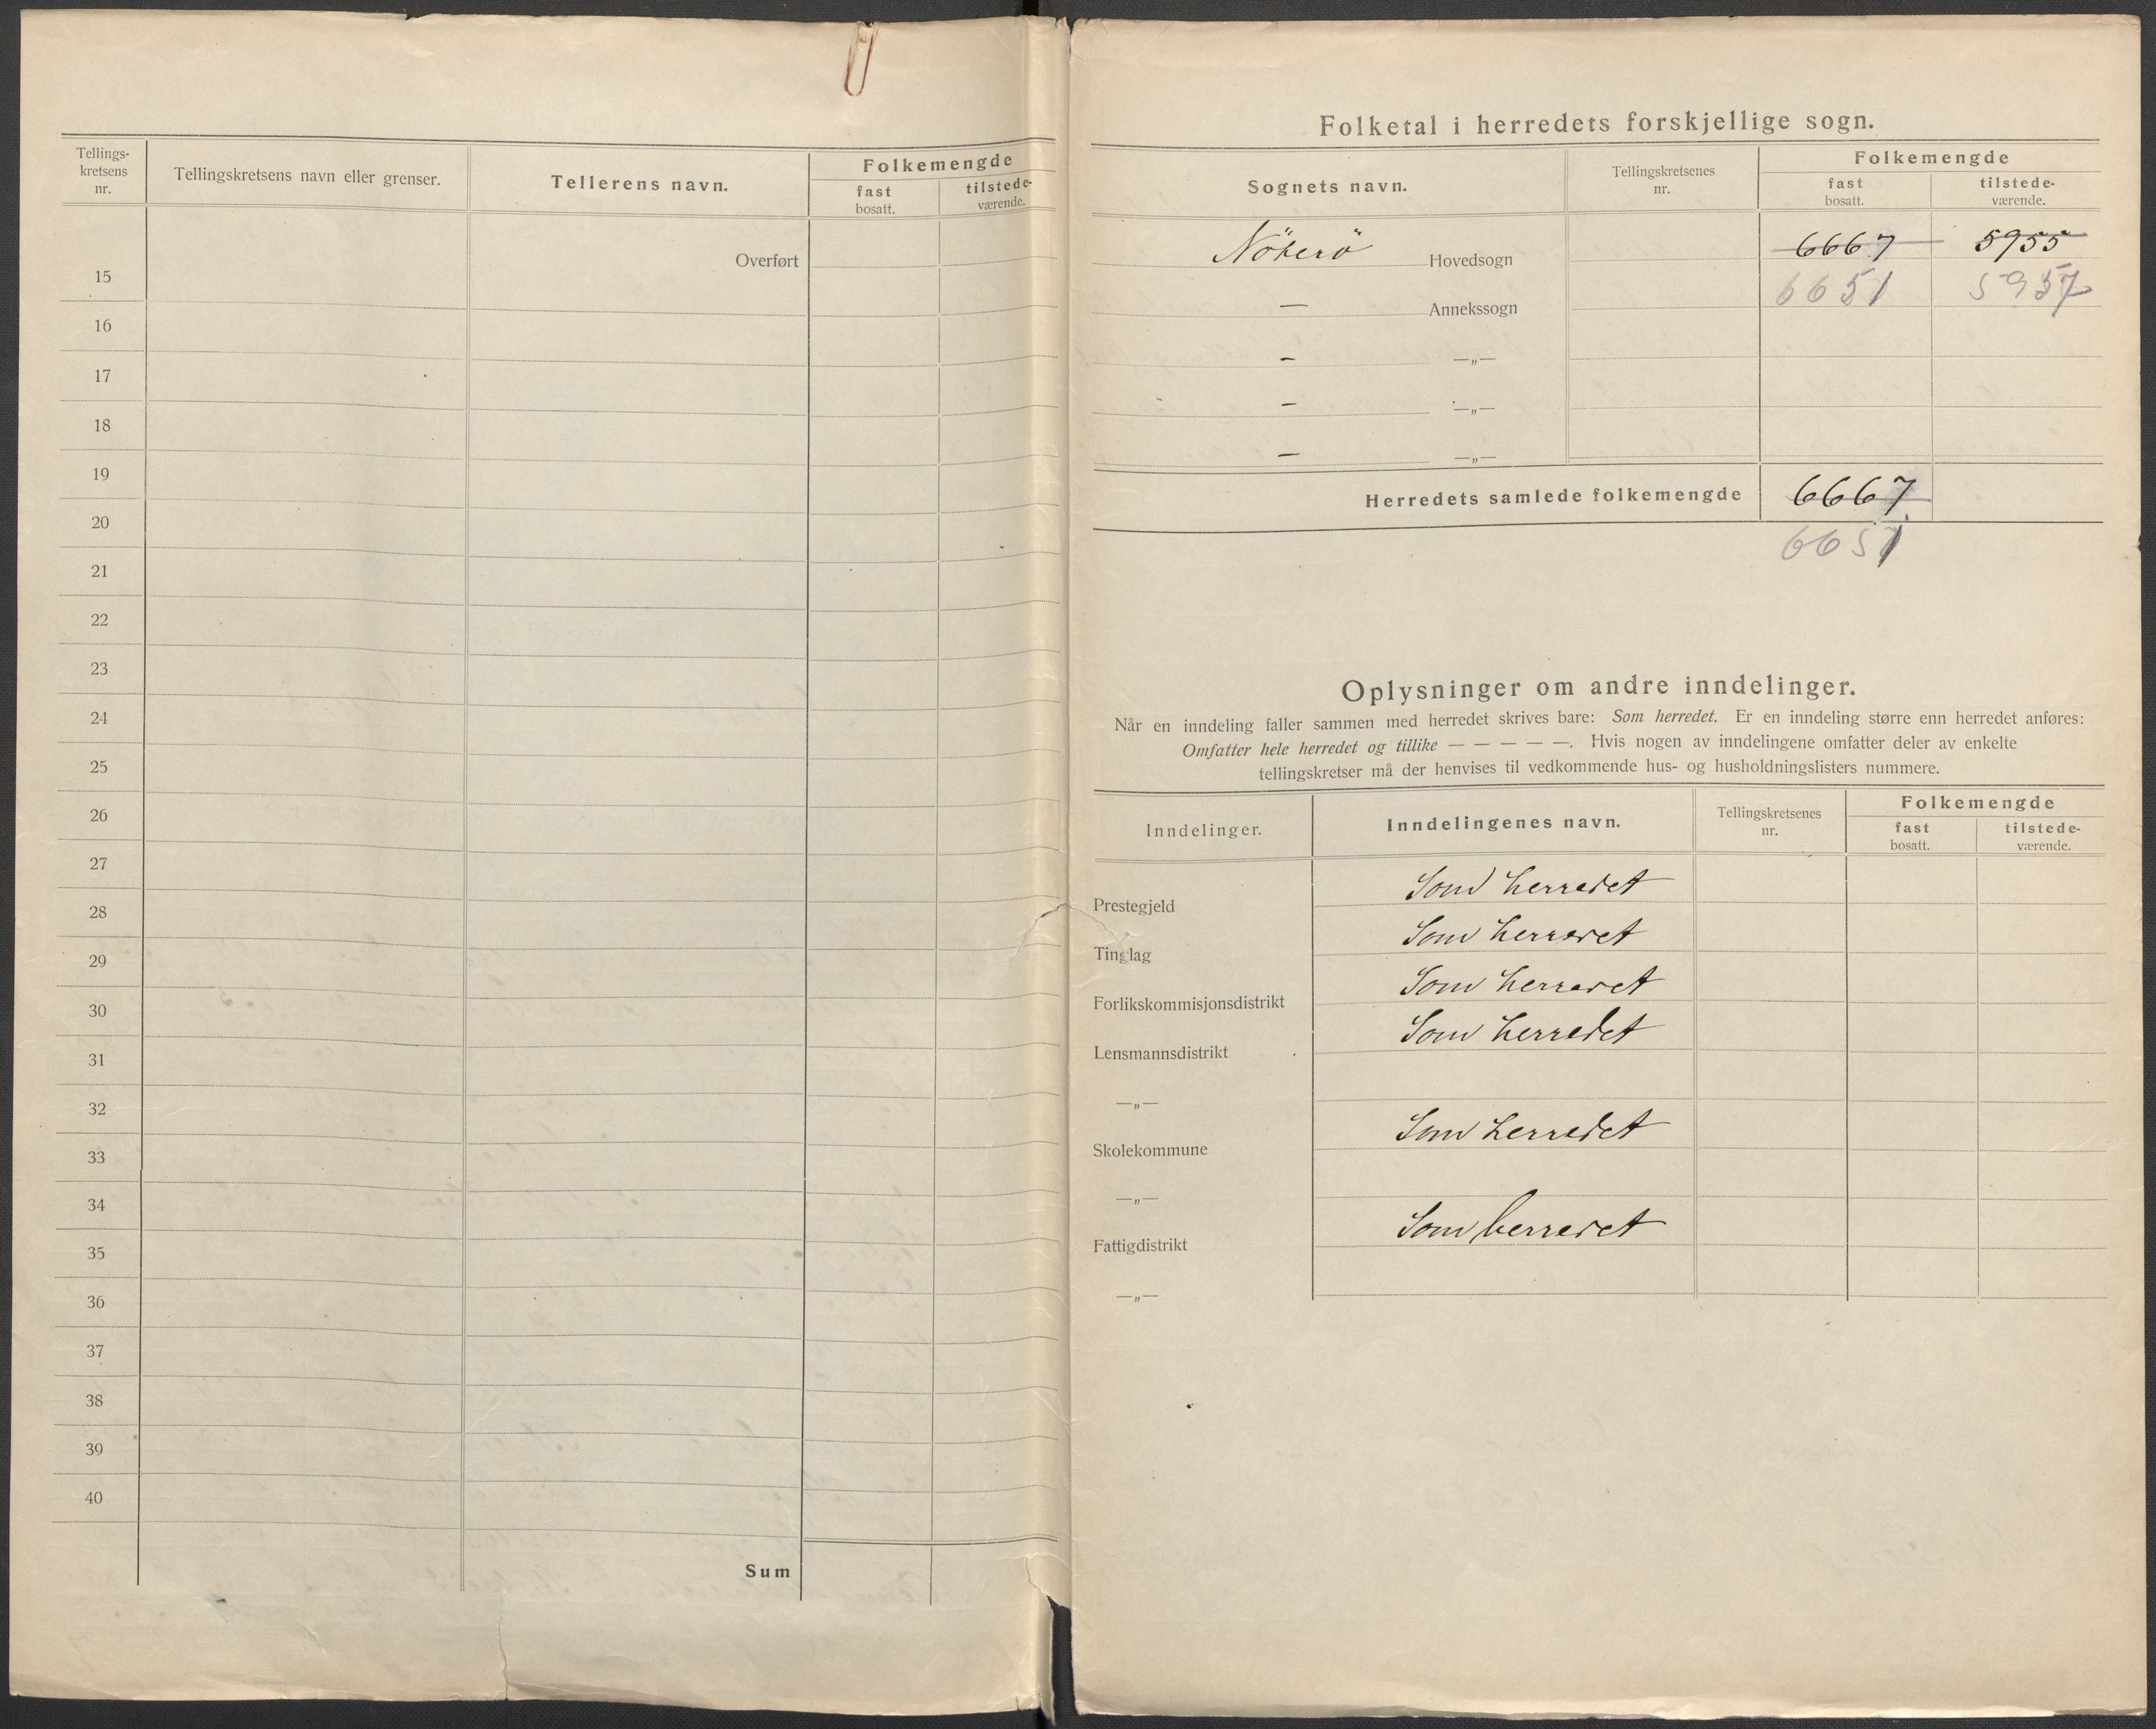 Tellings-
kretsens
nr.
Tellingskretsens navn eller grenser.
Tellerens navn.
Folkemengde
fast
bosatt.
tilstede-
værende.
Overført
15
16
17
18
19
20
21
22
23
24
25
26
27
28
29
30
31
32
33
34
35
36
37
38
39
40
Sum
Folketal i herredets forskjellige sogn.
Sognets navn.
Tellingskretsenes
nr.
Folkemengde
fast
bosatt.
tilstede-
værende.
Nöterö Hovedsogn 6667 5955
6651 5957
— Annekssogn
— —„—
— —„—
— —„—
Herredets samlede folkemengde 6667
6651
Oplysninger om andre inndelinger.
Når en inndeling faller sammen med herredet skrives bare: Som herredet. Er en inndeling større enn herredet anføres:
Omfatter hele herredet og tillike — — — — —. Hvis nogen av inndelingene omfatter deler av enkelte
tellingskretser må der henvises til vedkommende hus- og husholdningslisters nummere.
Inndelinger.
Inndelingenes navn.
Tellingskretsenes
nr.
Folkemengde
fast
bosatt.
tilstede-
værende.
Prestegjeld Som herredet
Tinglag Som herredet
Forlikskommisjonsdistrikt Som herredet
Lensmannsdistrikt Som herredet
—„—
Skolekommune Som herredet
—„—
Fattigdistrikt Som herredet
—„—